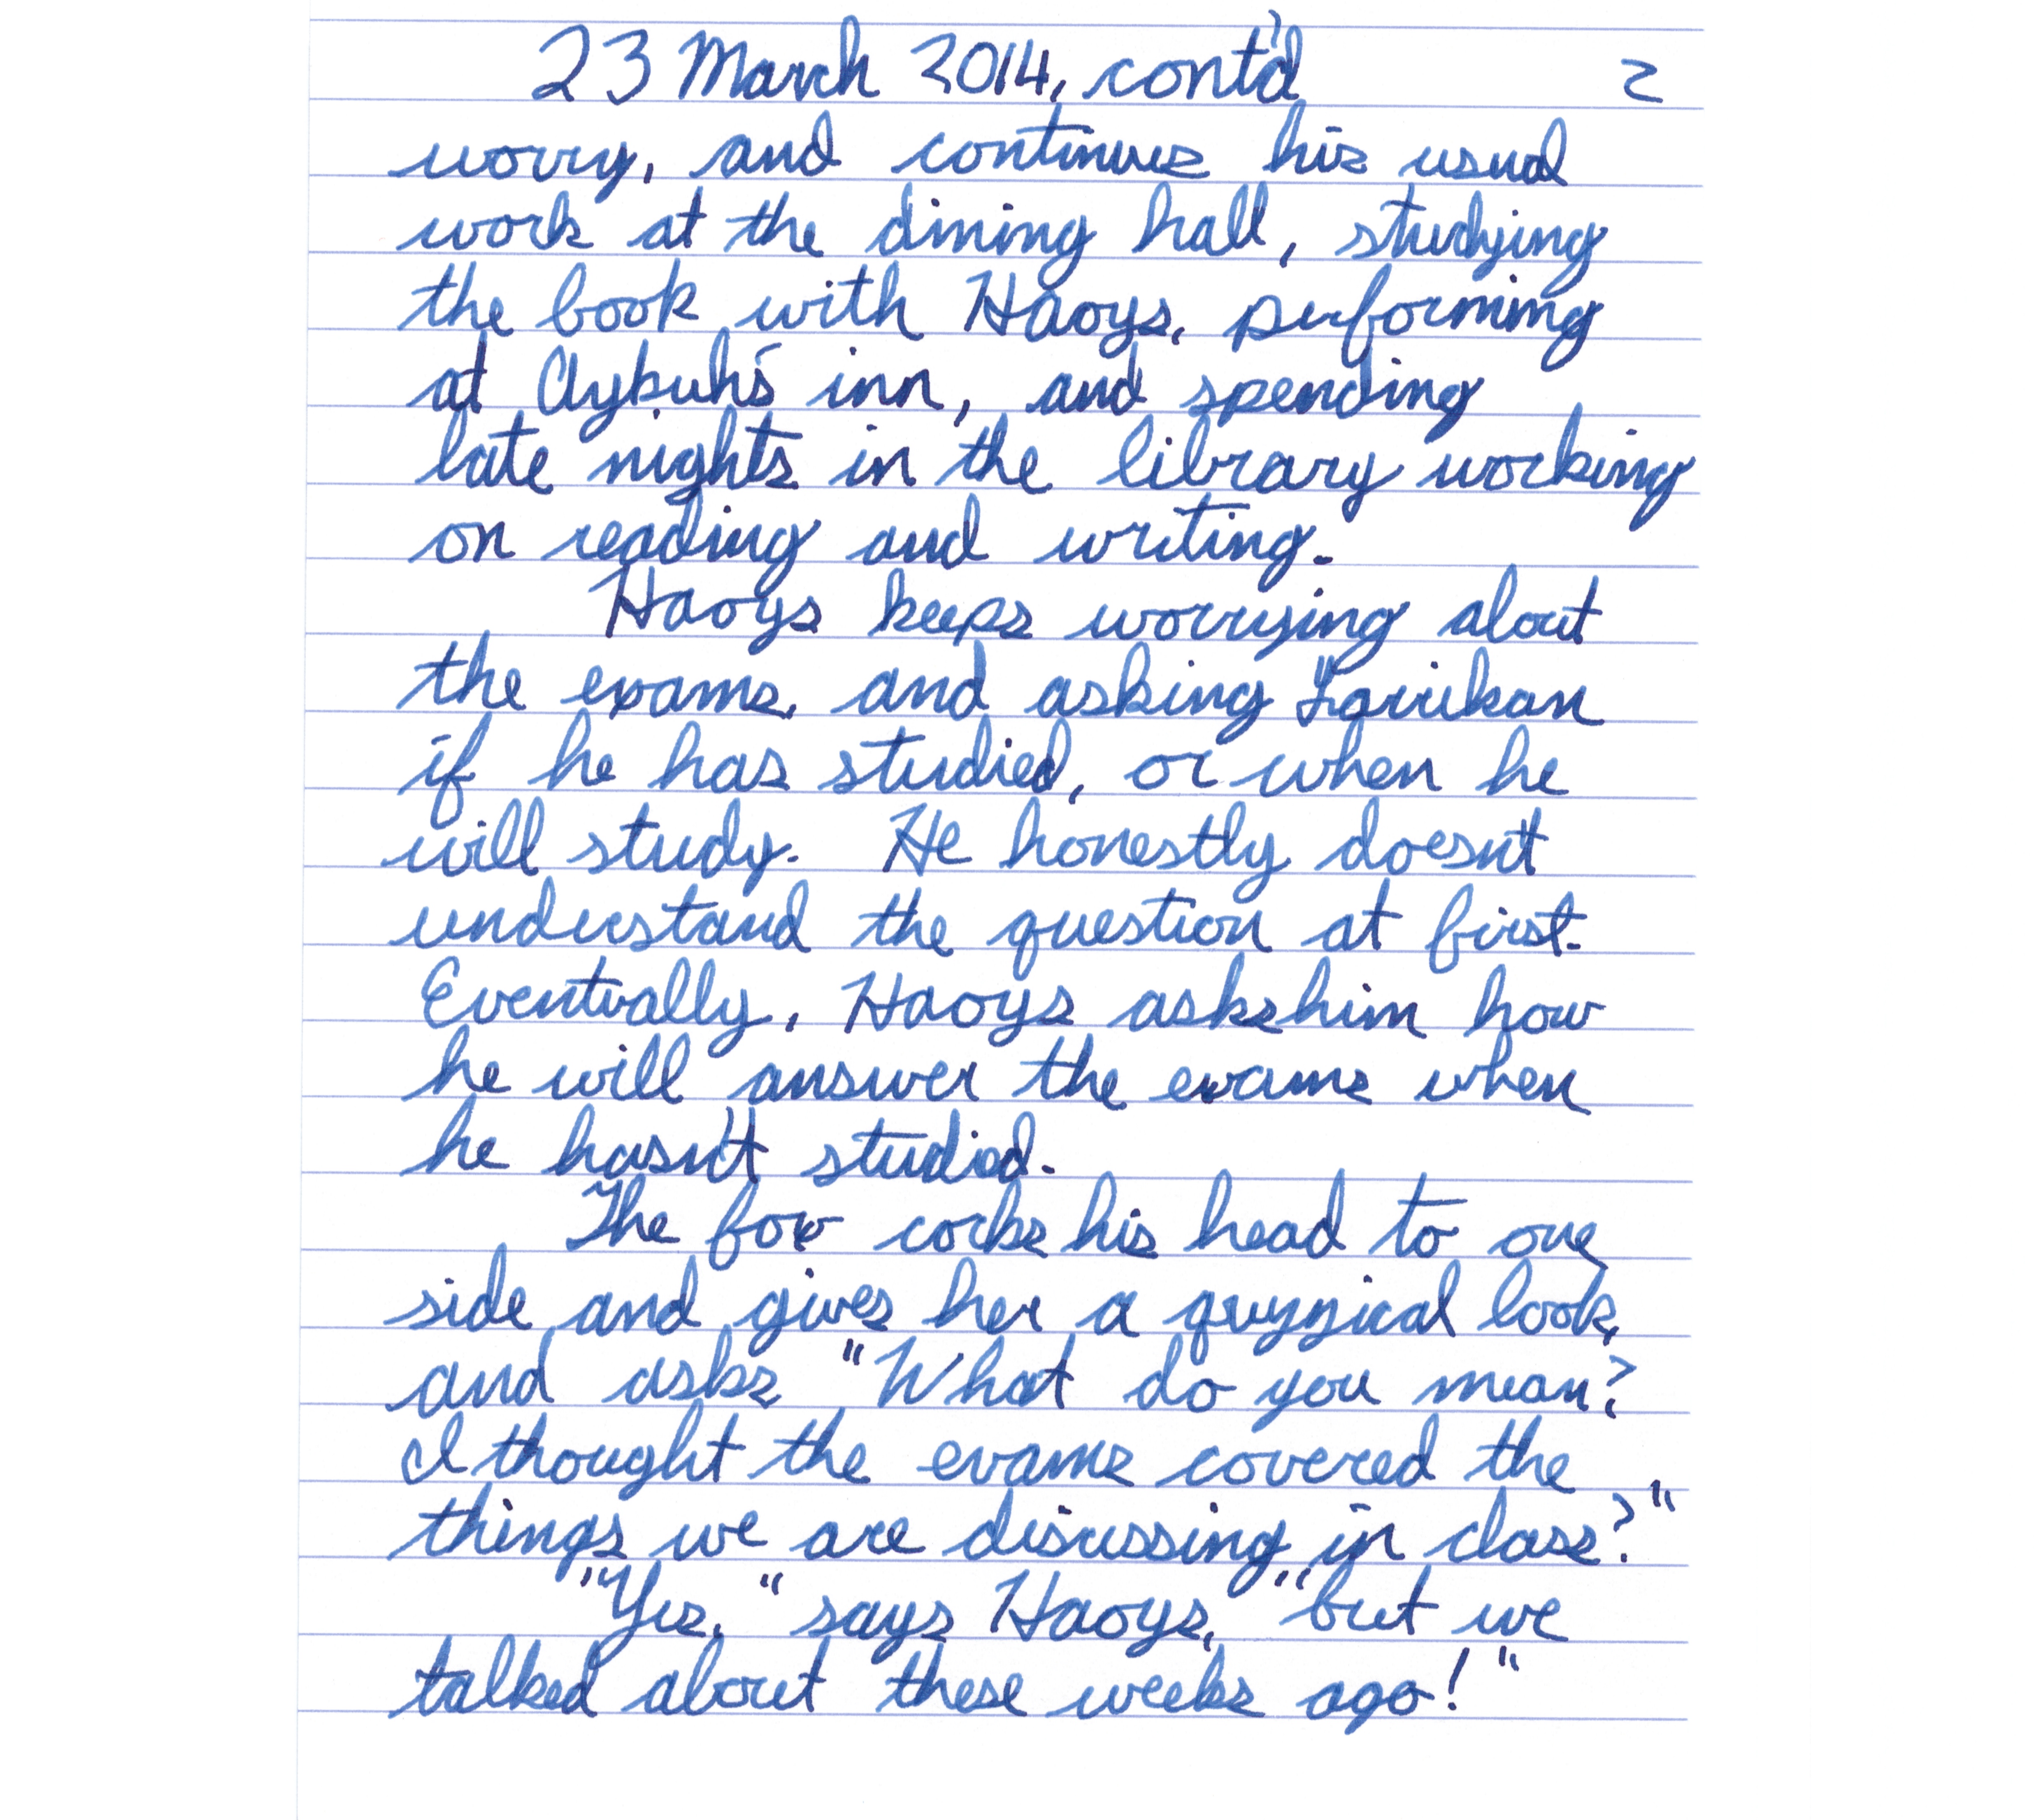 23 March 2014, cont'd 2
worry, and continues his usual
work at the dining hall, studying
the book with Haoys, performing
at Aybuh's inn, and spending
late nights in the library working
on reading and writing.
Haoys keeps worrying about
the exams, and asking Larrikan
if he has studied, or when he
will study. He honestly doesn't
understand the question at first.
Eventually, Haoys asks him how
he will answer the exams when
he hasn't studied.
The fox cocks his head to one
side and gives her a quizzical look,
and asks "What do you mean?
I thought the exams covered the
things we are discussing in class?"
"Yes," says Haoys, "but we
talked about these weeks ago!"